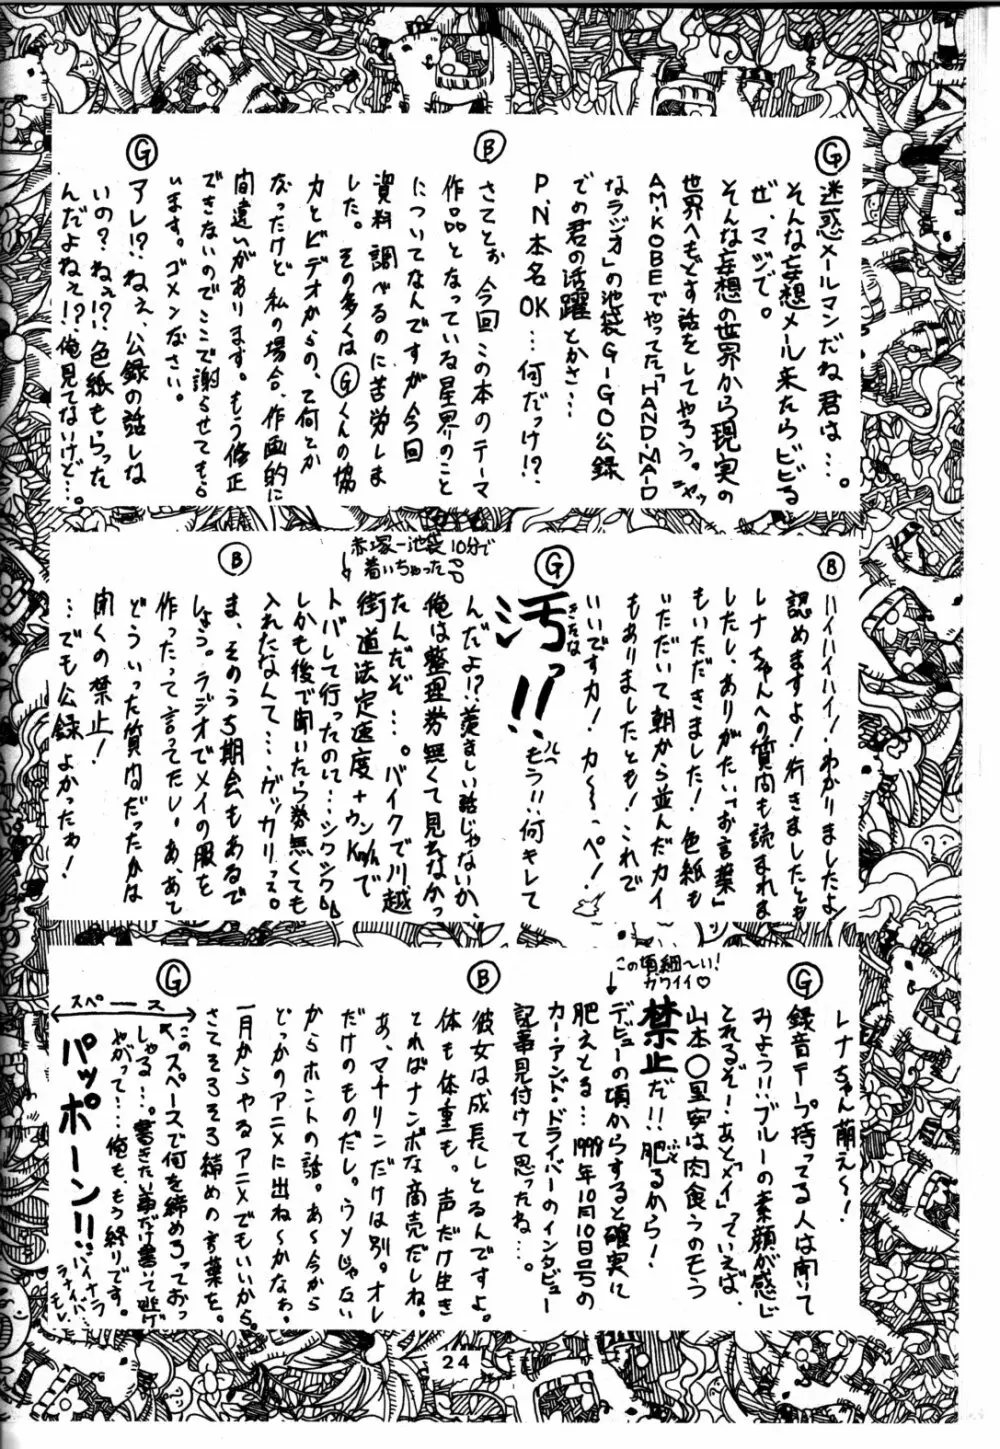 G
迷惑メールマンだね君は…。
そんな妄想メール来たらビビる
ぜ、マジで。
そんな妄想の世界から現実の
世界へもどす話をしてやろう。ニヤッ
AM・KOBEでやってた「HAND MAID
なラジオ」の池袋GIGO公録
での君の活躍とかさ…
P.N.本名OK…何だっけ!?
B
さてとぉ、今回この本のテーマ
作品となっている星界のこと
についてなんですが今回
資料調べるのに苦労しま
した。その多くはGくんの協
力とビデオからの、で何とか
なったけど私の場合、作画的に
間違いがあります。もう修正
できないのでここで謝らせてもら
います。ゴメンなさい。
G
アレ!?ねぇ、公録の話しな
いの?ねぇ!?色紙もらった
んだよねぇ!?俺見てないけど…。
B
ハイハイハイ!わかりましたよ!
認めますよ!行きましたとも
レナちゃんへの質問も読まれま
したし、ありがたい"お言葉"
もいただきました!色紙も
いただいて朝から並んだカイ
もありましたとも!これで
いいですカ!カ〜〜ッペ!
G
汚っ!!
きたな
もう!!何キレて
んだよ!?羨ましい話じゃないか、
俺は整理券無くて見えなかっ
たんだぞ…。バイクで川越
街道法定速度+ウンkm/hで
トバして行ったのに…シクシク
しかも後で聞いたら券無くても
入れたなんて…ガッカリっス。
赤塚ー池袋10分で
着いちゃった
B
ま、そのうち期会もあるで
しょう。ラジオでメイの服を
作ったって言ってたし。あ、あと
どういった質問だったかは
聞くの禁止!
…でも公録よかったぁ!
レナちゃん萌え〜!
G
録音テープ持ってる人は聞いて
みよう!!ブルーの素顔が感じ
とれるぞ!あと"メイ"っていえば、
山本〇里安は肉食うのもう
禁止だ!!肥るから!
デビューの頃からすると確実に
肥えとる…1998年10月10日号の
カー・アンド・ドライバーのインタビュー
記事見付けて思ったね…。
この頃細〜い!
カワイイ♡
B
彼女は成長しとるんですよ。
体も体重も。声だけ生き
とればナンボな商売だしね。
あ、マチリンだけは別。オレ
だけのものだし。ウソじゃない
からホントの話。あ〜今から
どっかのアニメに出ね〜かなぁ。
一月からやるアニメでもいいから。
さてそろそろ締めの言葉を。
G
スペース
このスペースで何を締めろっておっ
しゃる…。書きたい事だけ書いて逃げ
やがって…俺も、もう終りです。
パッポーン!!
バイナラ
ライバ…
24